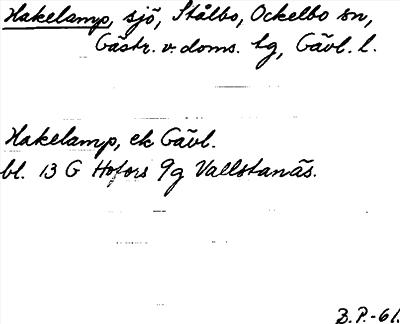 Hakelamp, sjö, Stålbo, Ockelbo sn,
Gästr. v. doms. tg, Gävl. l.
Hakelamp, ek Gävl.
bl. 13 G Hofors 9g Vallstanäs.
B.P.-61.